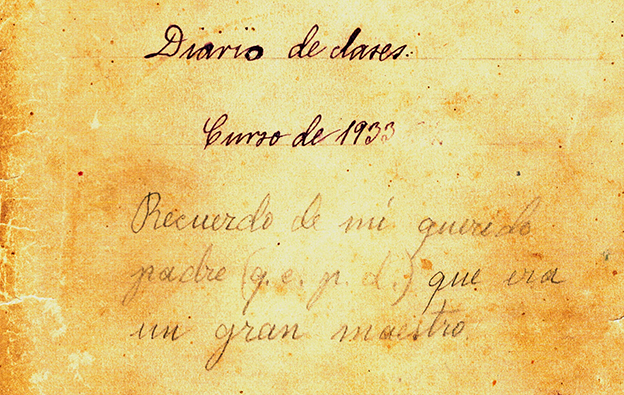 Diario de clases.
Curso de 1933
Recuerdo de mi querido
padre (q. e. p. d.) que era
un gran maestro